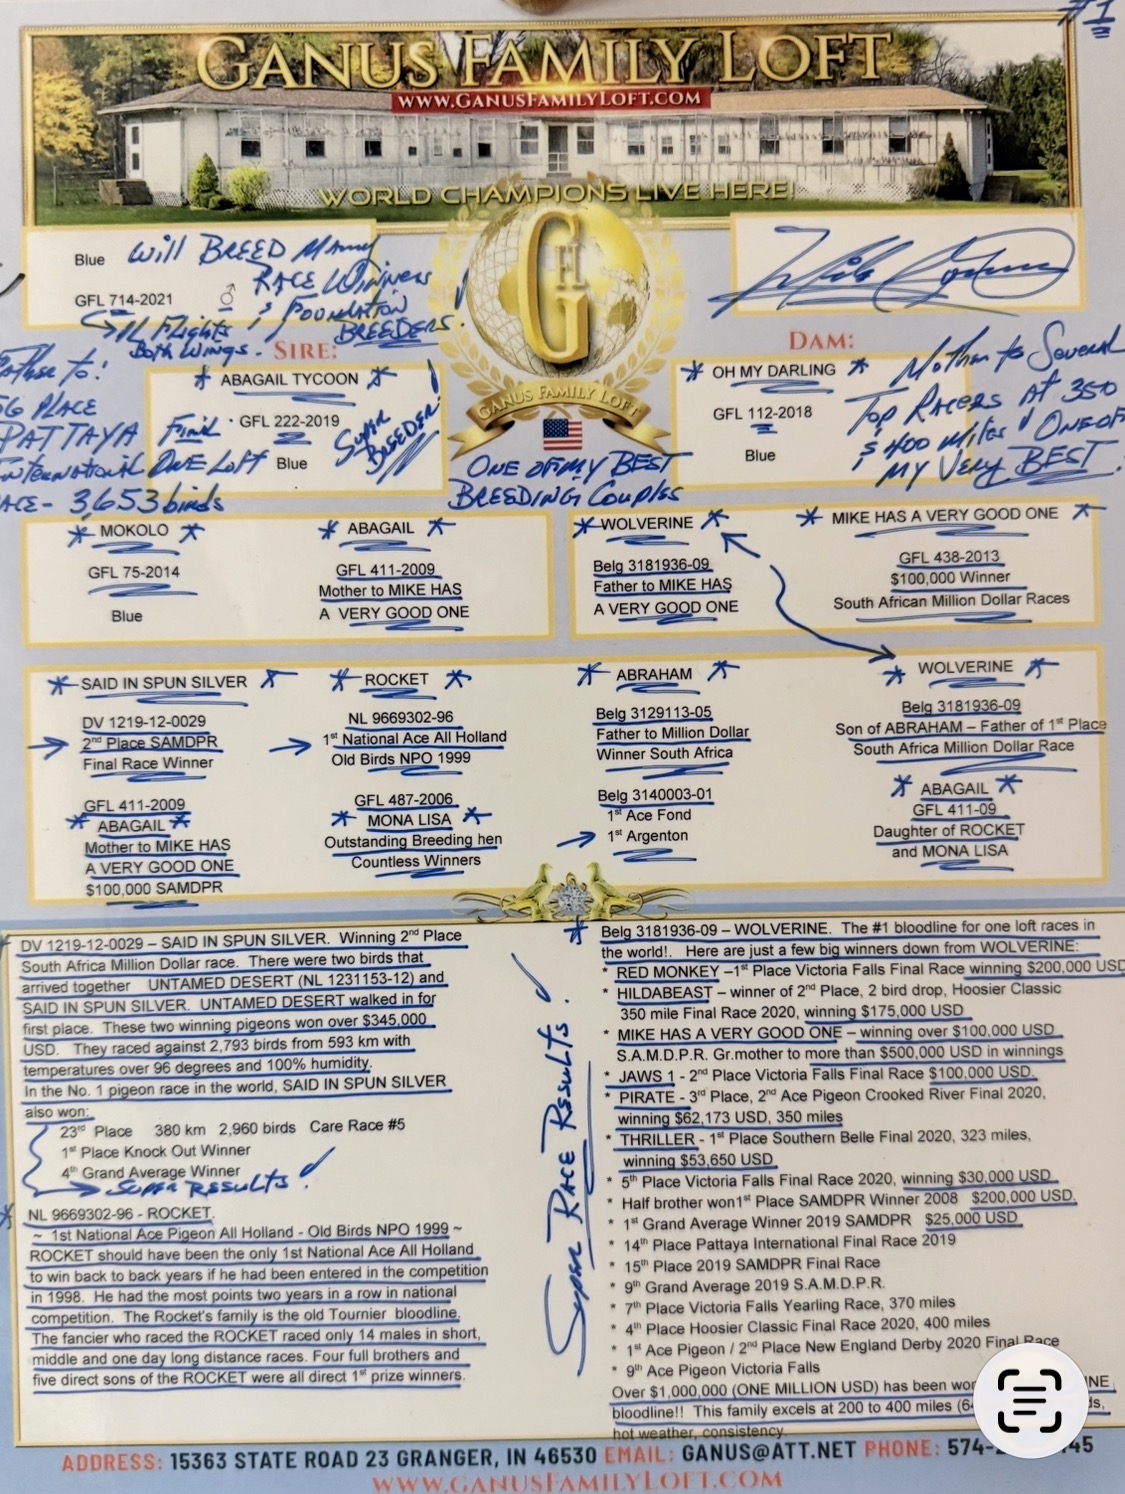 #1
GANUS FAMILY LOFT
WWW.GANUSFAMILYLOFT.COM
WORLD CHAMPIONS LIVE HERE!
G
F
Blue
GFL 714-2021 ♂
Will BREED Many
RACE Winners
& Foundation
BREEDERS.
11 Flights
Both Wings.
SIRE:
* ABAGAIL TYCOON *
GFL 222-2019
Blue
Super
BREEDER!
56 PLACE
PATTAYA Final
International ONE Loft
3,653 birds
GANUS FAMILY LOFT
ONE OF MY BEST
BREEDING Couples
DAM:
* OH MY DARLING *
GFL 112-2018
Blue
Mother to Several
Top Racers AT 350
& 400 miles ONE OF
MY Very BEST.
* MOKOLO *
GFL 75-2014
Blue
* ABAGAIL *
GFL 411-2009
Mother to MIKE HAS
A VERY GOOD ONE
* WOLVERINE *
Belg 3181936-09
Father to MIKE HAS
A VERY GOOD ONE
* MIKE HAS A VERY GOOD ONE *
GFL 438-2013
$100,000 Winner
South African Million Dollar Races
* SAID IN SPUN SILVER *
DV 1219-12-0029
2nd Place SAMDPR
Final Race Winner
GFL 411-2009
* ABAGAIL *
Mother to MIKE HAS
A VERY GOOD ONE
$100,000 SAMDPR
* ROCKET *
NL 9669302-96
1st National Ace All Holland
Old Birds NPO 1999
GFL 487-2006
* MONA LISA *
Outstanding Breeding hen
Countless Winners
* ABRAHAM *
Belg 3129113-05
Father to Million Dollar
Winner South Africa
Belg 3140003-01
1st Ace Fond
1st Argenton
* WOLVERINE *
Belg 3181936-09
Son of ABRAHAM – Father of 1st Place
South Africa Million Dollar Race
* ABAGAIL *
GFL 411-09
Daughter of ROCKET
and MONA LISA
DV 1219-12-0029 – SAID IN SPUN SILVER. Winning 2nd Place
South Africa Million Dollar race. There were two birds that
arrived together UNTAMED DESERT (NL 1231153-12) and
SAID IN SPUN SILVER. UNTAMED DESERT walked in for
first place. These two winning pigeons won over $345,000
USD. They raced against 2,793 birds from 593 km with
temperatures over 96 degrees and 100% humidity.
In the No. 1 pigeon race in the world, SAID IN SPUN SILVER
also won:
23rd Place 380 km 2,960 birds Care Race #5
1st Place Knock Out Winner
4th Grand Average Winner
Super Results!
* NL 9669302-96 - ROCKET.
~ 1st National Ace Pigeon All Holland - Old Birds NPO 1999 ~
ROCKET should have been the only 1st National Ace All Holland
to win back to back years if he had been entered in the competition
in 1998. He had the most points two years in a row in national
competition. The Rocket's family is the old Tournier bloodline.
The fancier who raced the ROCKET raced only 14 males in short,
middle and one day long distance races. Four full brothers and
five direct sons of the ROCKET were all direct 1st prize winners.
Super RACE Results!
* Belg 3181936-09 – WOLVERINE. The #1 bloodline for one loft races in
the world!. Here are just a few big winners down from WOLVERINE:
* RED MONKEY –1st Place Victoria Falls Final Race winning $200,000 USD
* HILDABEAST – winner of 2nd Place, 2 bird drop, Hoosier Classic
350 mile Final Race 2020, winning $175,000 USD
* MIKE HAS A VERY GOOD ONE – winning over $100,000 USD
S.A.M.D.P.R. Gr.mother to more than $500,000 USD in winnings
* JAWS 1 - 2nd Place Victoria Falls Final Race $100,000 USD.
* PIRATE - 3rd Place, 2nd Ace Pigeon Crooked River Final 2020,
winning $62,173 USD, 350 miles
* THRILLER - 1st Place Southern Belle Final 2020, 323 miles,
winning $53,650 USD
* 5th Place Victoria Falls Final Race 2020, winning $30,000 USD
* Half brother won1st Place SAMDPR Winner 2008 $200,000 USD.
* 1st Grand Average Winner 2019 SAMDPR $25,000 USD
* 14th Place Pattaya International Final Race 2019
* 15th Place 2019 SAMDPR Final Race
* 9th Grand Average 2019 S.A.M.D.P.R.
* 7th Place Victoria Falls Yearling Race, 370 miles
* 4th Place Hoosier Classic Final Race 2020, 400 miles
* 1st Ace Pigeon / 2nd Place New England Derby 2020 Final Race
* 9th Ace Pigeon Victoria Falls
Over $1,000,000 (ONE MILLION USD) has been
bloodline!! This family excels at 200 to 400 miles
hot weather, consistency.
ADDRESS: 15363 STATE ROAD 23 GRANGER, IN 46530 EMAIL: GANUS@ATT.NET PHONE:
WWW.GANUSFAMILYLOFT.COM